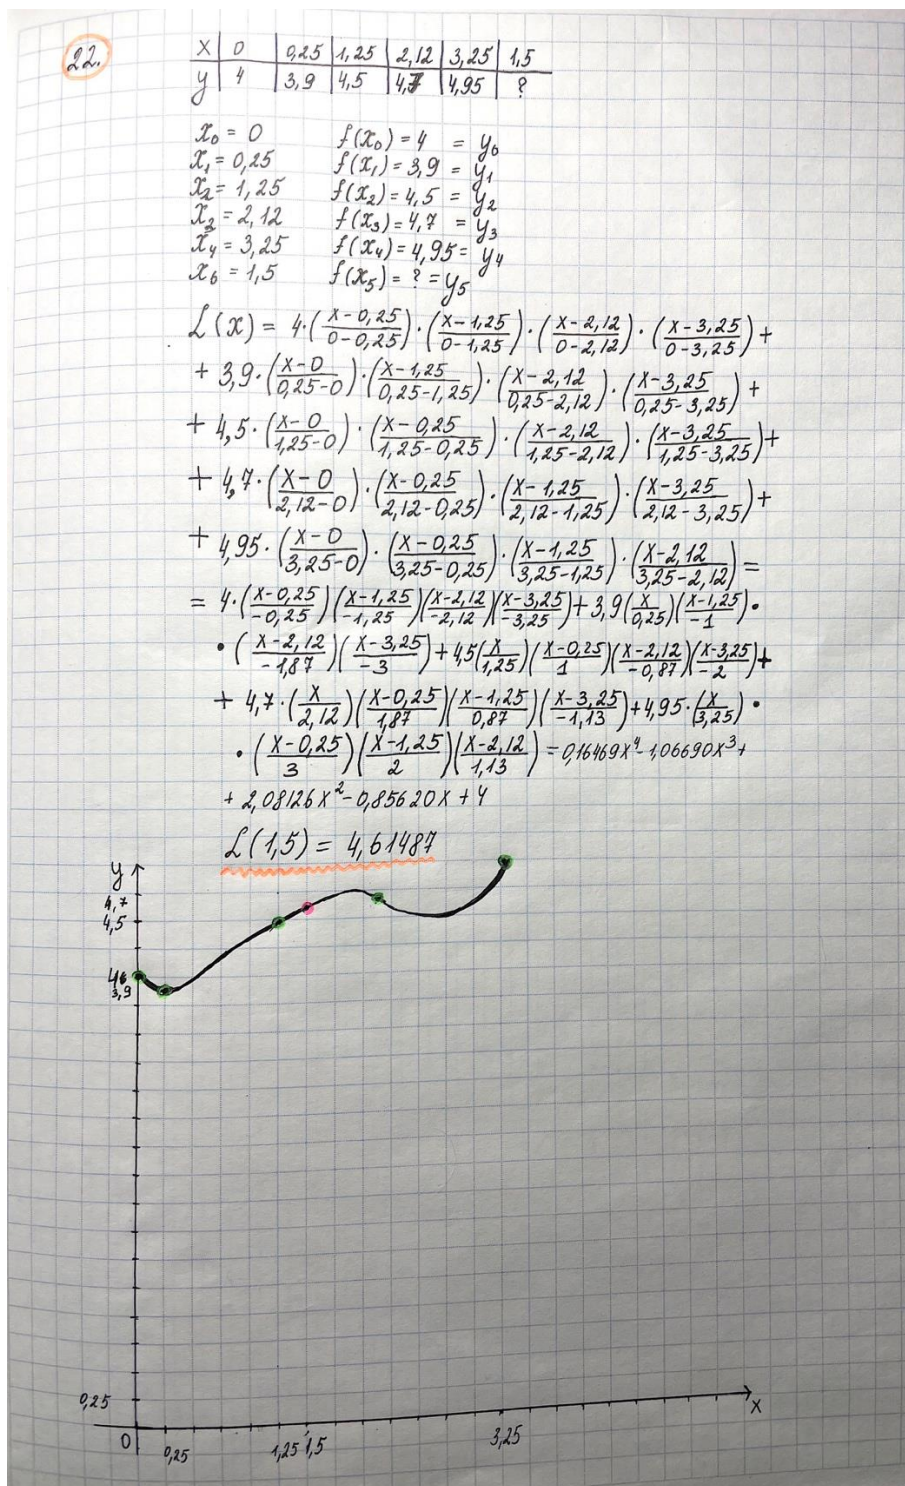 22.
x | 0 | 0,25 | 1,25 | 2,12 | 3,25 | 1,5
y | 4 | 3,9 | 4,5 | 4,7 | 4,95 | ?
x₀ = 0 f(x₀) = 4 = y₀
x₁ = 0,25 f(x₁) = 3,9 = y₁
x₂ = 1,25 f(x₂) = 4,5 = y₂
x₃ = 2,12 f(x₃) = 4,7 = y₃
x₄ = 3,25 f(x₄) = 4,95 = y₄
x₆ = 1,5 f(x₅) = ? = y₅
L(x) = 4·((x-0,25)/(0-0,25))·((x-1,25)/(0-1,25))·((x-2,12)/(0-2,12))·((x-3,25)/(0-3,25)) +
+ 3,9·((x-0)/(0,25-0))·((x-1,25)/(0,25-1,25))·((x-2,12)/(0,25-2,12))·((x-3,25)/(0,25-3,25)) +
+ 4,5·((x-0)/(1,25-0))·((x-0,25)/(1,25-0,25))·((x-2,12)/(1,25-2,12))·((x-3,25)/(1,25-3,25)) +
+ 4,7·((x-0)/(2,12-0))·((x-0,25)/(2,12-0,25))·((x-1,25)/(2,12-1,25))·((x-3,25)/(2,12-3,25)) +
+ 4,95·((x-0)/(3,25-0))·((x-0,25)/(3,25-0,25))·((x-1,25)/(3,25-1,25))·((x-2,12)/(3,25-2,12)) =
= 4·((x-0,25)/(-0,25))((x-1,25)/(-1,25))((x-2,12)/(-2,12))((x-3,25)/(-3,25)) + 3,9(x/0,25)((x-1,25)/(-1))·
·((x-2,12)/(-1,87))((x-3,25)/(-3)) + 4,5(x/1,25)((x-0,25)/1)((x-2,12)/(-0,87))((x-3,25)/(-2)) +
+ 4,7·(x/2,12)((x-0,25)/1,87)((x-1,25)/0,87)((x-3,25)/(-1,13)) + 4,95·(x/3,25)·
·((x-0,25)/3)((x-1,25)/2)((x-2,12)/1,13) = 0,16469x⁴ - 1,06690x³ +
+ 2,08126x² - 0,85620x + 4
L(1,5) = 4,61487
y
4,7
4,5
3,9
0,25
0
0,25
1,25
1,5
3,25
x